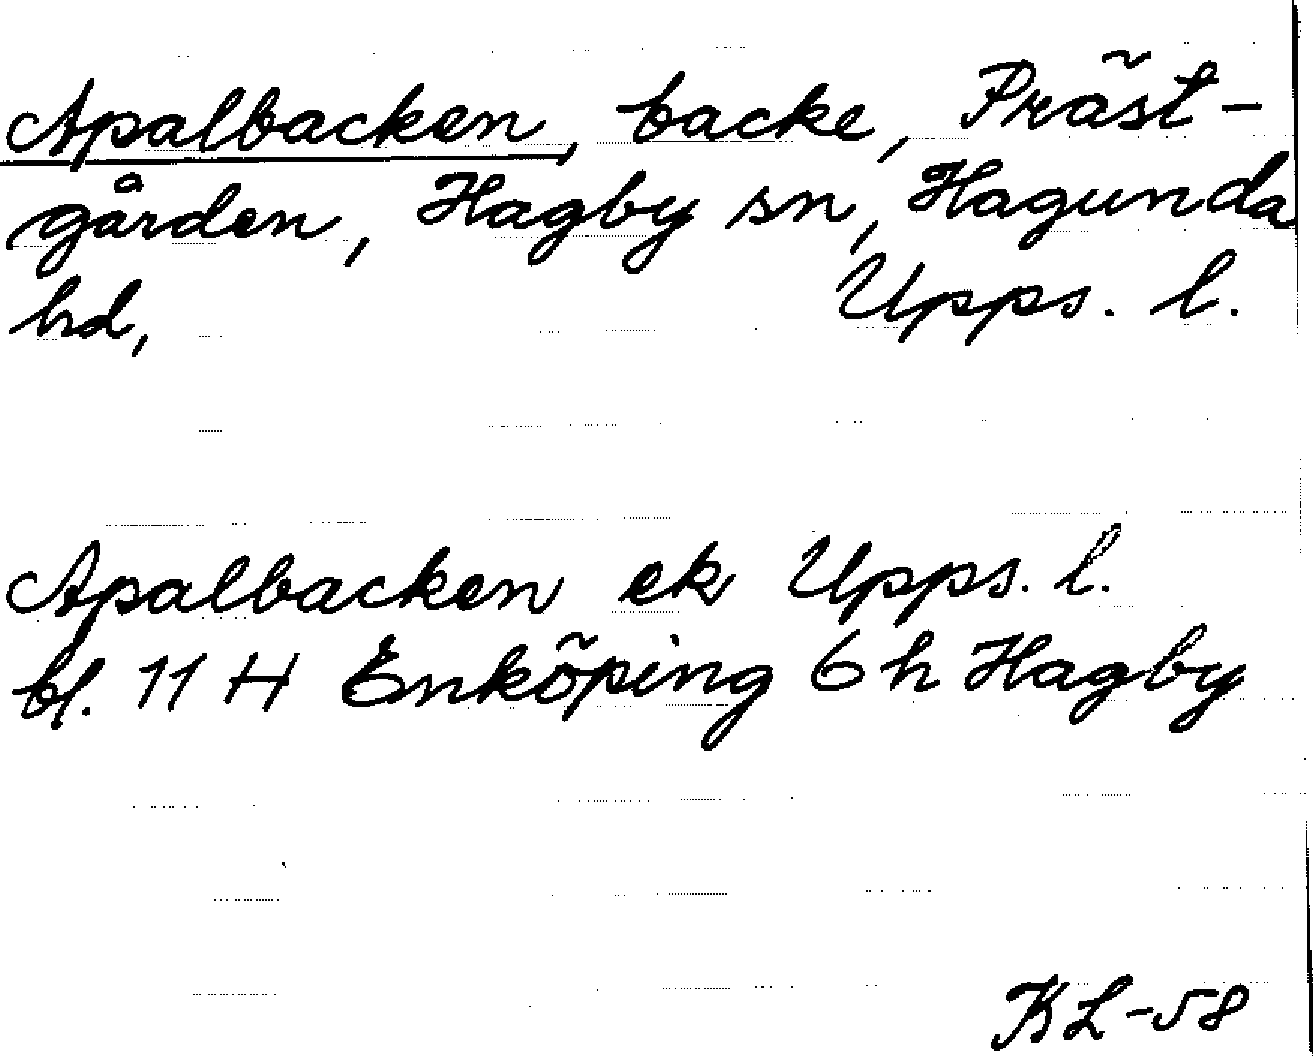 Apalbacken, backe, Präst-
gården, Hagby sn, Hagunda
hd, Upps. l.
Apalbacken ek Upps. l.
bl. 11 H Enköping 6 h Hagby
KL-58